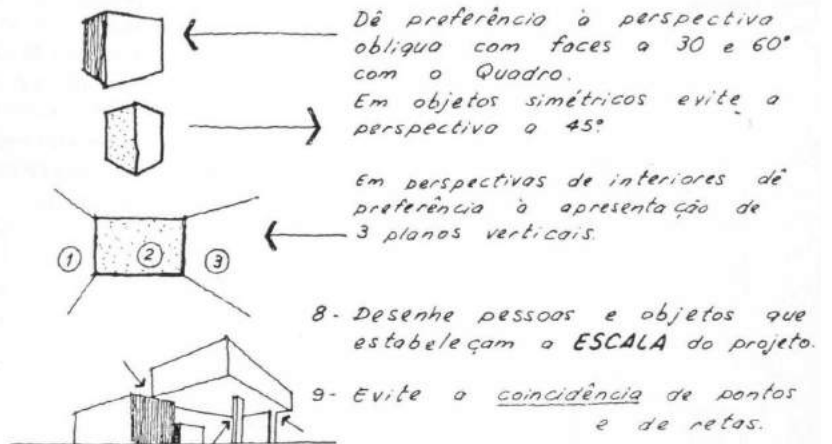 Dê preferência à perspectiva
oblíqua com faces a 30 e 60°
com o Quadro.
Em objetos simétricos evite a
perspectiva a 45°
Em perspectivas de interiores dê
preferência à apresentação de
3 planos verticais.
1 2 3
8- Desenhe pessoas e objetos que
estabeleçam a ESCALA do projeto.
9- Evite a coincidência de pontos
e de retas.